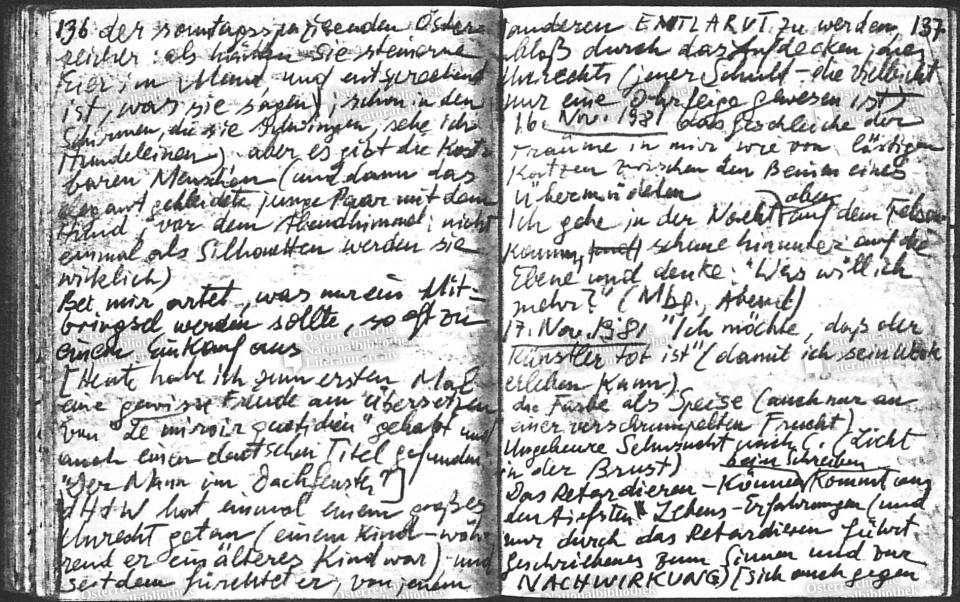 136 der sonntagsspazierenden Öster-
reicher: als hätten sie steinerne
Eier im Mund, und entsprechend
ist, was sie sagen; schon in den
Schirmen, die sie schwingen, sehe ich
Hundeleinen) aber es gibt die Kost-
baren Menschen (und dann das
elegant gekleidete junge Paar mit dem
Hund, vor dem Abendhimmel: nicht
einmal als Silhouetten werden sie
wirklich)
Bei mir artet, was nur ein Mit-
bringsel werden sollte, so oft zu
einem Einkauf aus
[Heute habe ich zum ersten Mal
eine gewisse Freude am Übersetzen
von "Le miroir quotidien" gehabt und
auch einen deutschen Titel gefunden:
"Der Mann im Dachfenster"]
dHdW hat einmal einem großes
Unrecht getan (einem Kind – wäh-
rend er ein älteres Kind war) – und
seitdem fürchtet er, von jenem
anderen ENTLARVT zu werden, 137
bloß durch das Aufdecken jenes
Unrechts (jener Schuld – die vielleicht
nur eine Ohrfeige gewesen ist)
16. Nov. 1981 das Geschleiche der
Träume in mir wie von lästigen
Katzen zwischen den Beinen eines
Übermüdeten
Ich gehe in der Nacht oben auf dem Felsen-
kamm, schaue hinunter auf die
Ebene und denke: "Was will ich
mehr?" (Mbg., Abend)
17. Nov. 1981 "Ich möchte, daß der
Künstler tot ist" (damit ich sein Werk
erleben kann)
die Farbe als Speise (auch nur an
einer verschrumpelten Frucht)
Ungeheure Sehnsucht nach C. (Licht
in der Brust)
beim Schreiben
Das Retardieren-Können kommt aus
den tiefsten Lebens-Erfahrungen (und
nur durch das Retardieren führt
Geschriebenes zum Sinnen und zur
NACHWIRKUNG) [sich auch gegen